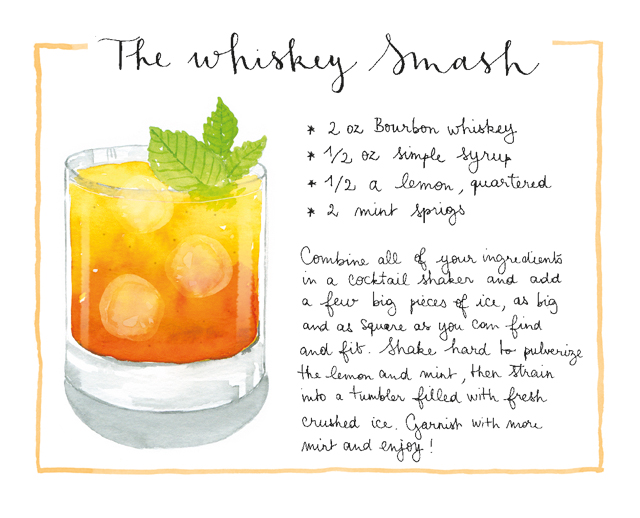 The whiskey Smash
* 2 oz Bourbon whiskey
* 1/2 oz simple syrup
* 1/2 a lemon, quartered
* 2 mint sprigs
Combine all of your ingredients
in a cocktail shaker and add
a few big pieces of ice, as big
and as square as you can find
and fit. Shake hard to pulverize
the lemon and mint, then strain
into a tumbler filled with fresh
crushed ice. Garnish with more
mint and enjoy!